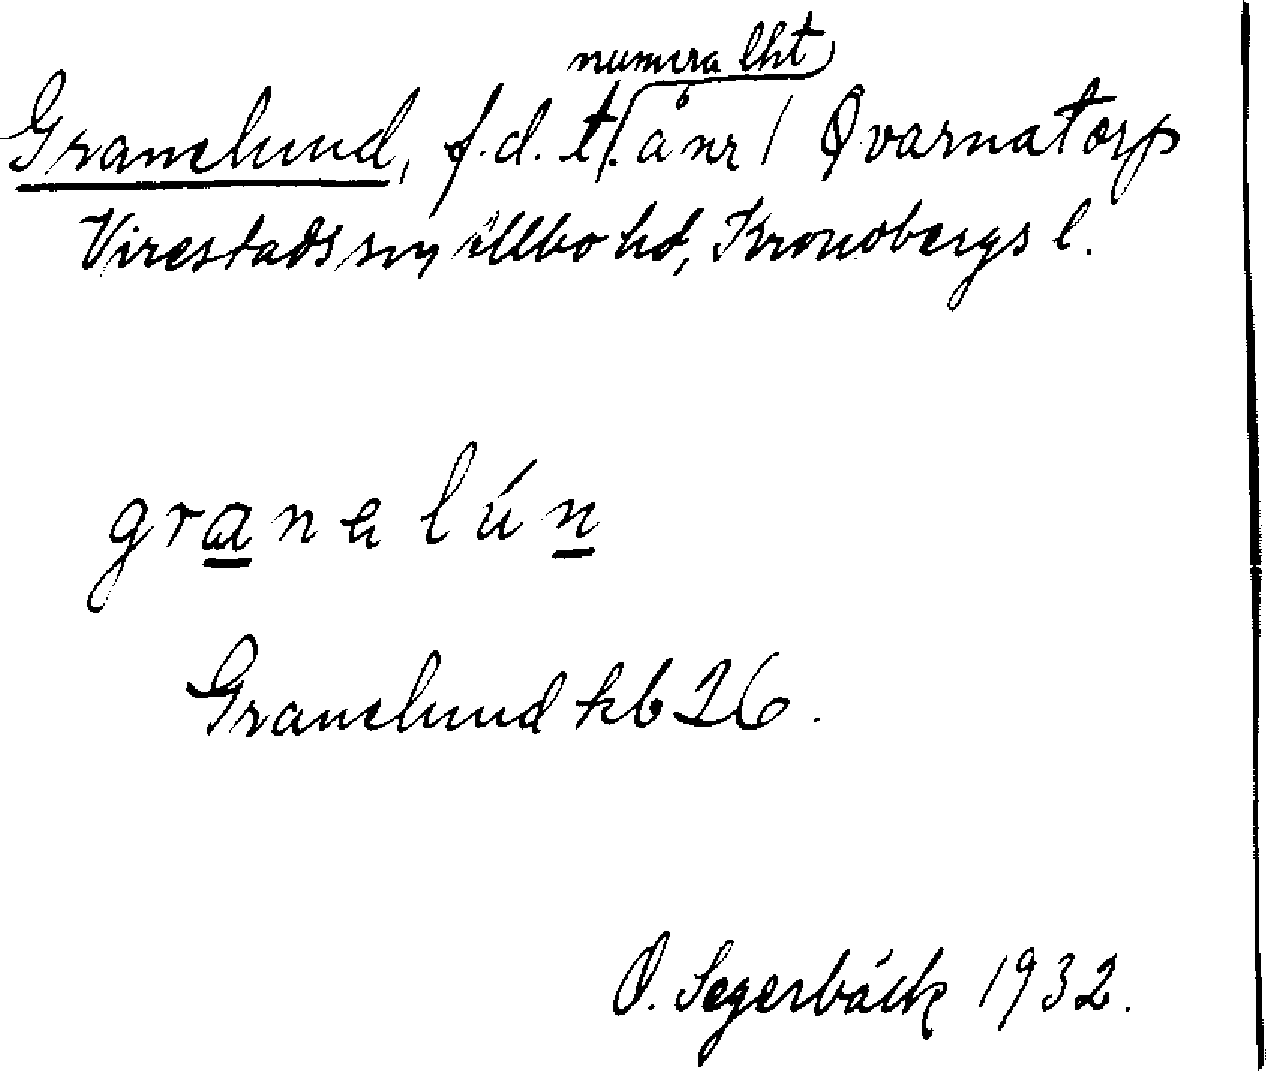 numera lht
Granelund, f.d. t. å nr 1 Qvarnatorp
Virestads sn, Allbo hd, Kronobergs l.
granəlún
Granelund kb 26.
O. Segerbäck 1932.